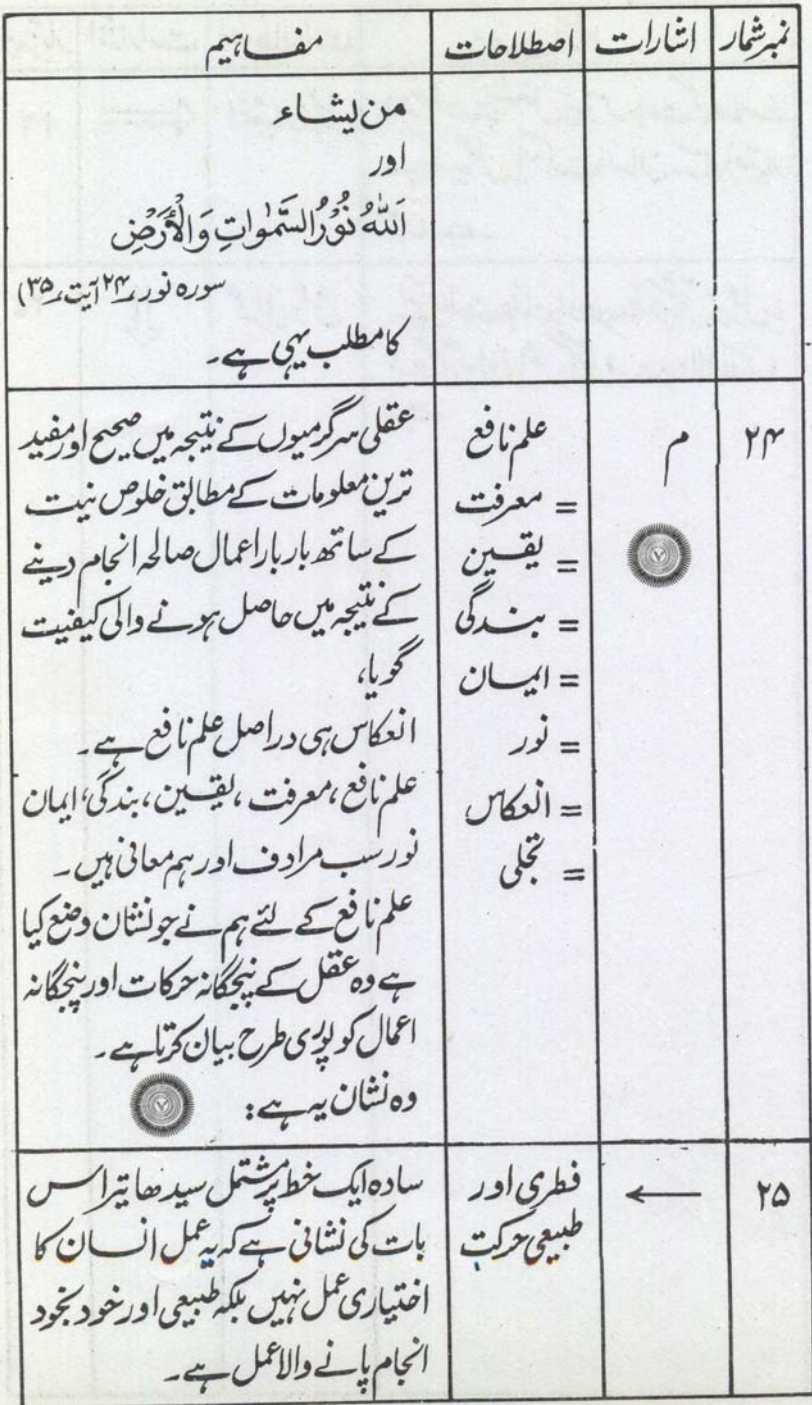 نمبر شمار اشارات اصطلاحات مفاہیم
من یشاء
اور
اَللّٰهُ نُوْرُ السَّمٰوَاتِ وَالْاَرْضِ
سورہ نور ۲۴ آیت ۳۵)
کا مطلب یہی ہے۔
۲۴
م
۷
علم نافع
= معرفت
= یقین
= بندگی
= ایمان
= نور
= انعکاس
= تجلی
عقلی سرگرمیوں کے نتیجہ میں صحیح اور مفید
ترین معلومات کے مطابق خلوص نیت
کے ساتھ بار بار اعمال صالحہ انجام دینے
کے نتیجہ میں حاصل ہونے والی کیفیت
گویا،
انعکاس ہی دراصل علم نافع ہے۔
علم نافع، معرفت، یقین، بندگی، ایمان
نور سب مرادف اور ہم معانی ہیں۔
علم نافع کے لئے ہم نے جو نشان وضع کیا
ہے وہ عقل کے پنجگانہ حرکات اور پنجگانہ
اعمال کو پوری طرح بیان کرتا ہے۔
وہ نشان یہ ہے: ۷
۲۵
←
فطری اور
طبیعی حرکت
سادہ ایک خط پر مشتمل سیدھا تیر اس
بات کی نشانی ہے کہ یہ عمل انسان کا
اختیاری عمل نہیں بلکہ طبیعی اور خود بخود
انجام پانے والا عمل ہے۔